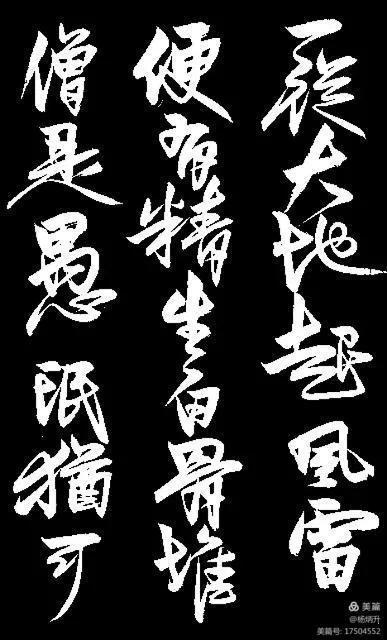 一從大地起風雷
便有精生白骨堆
僧是愚氓猶可
美篇
@杨炳升
美篇号: 17504552